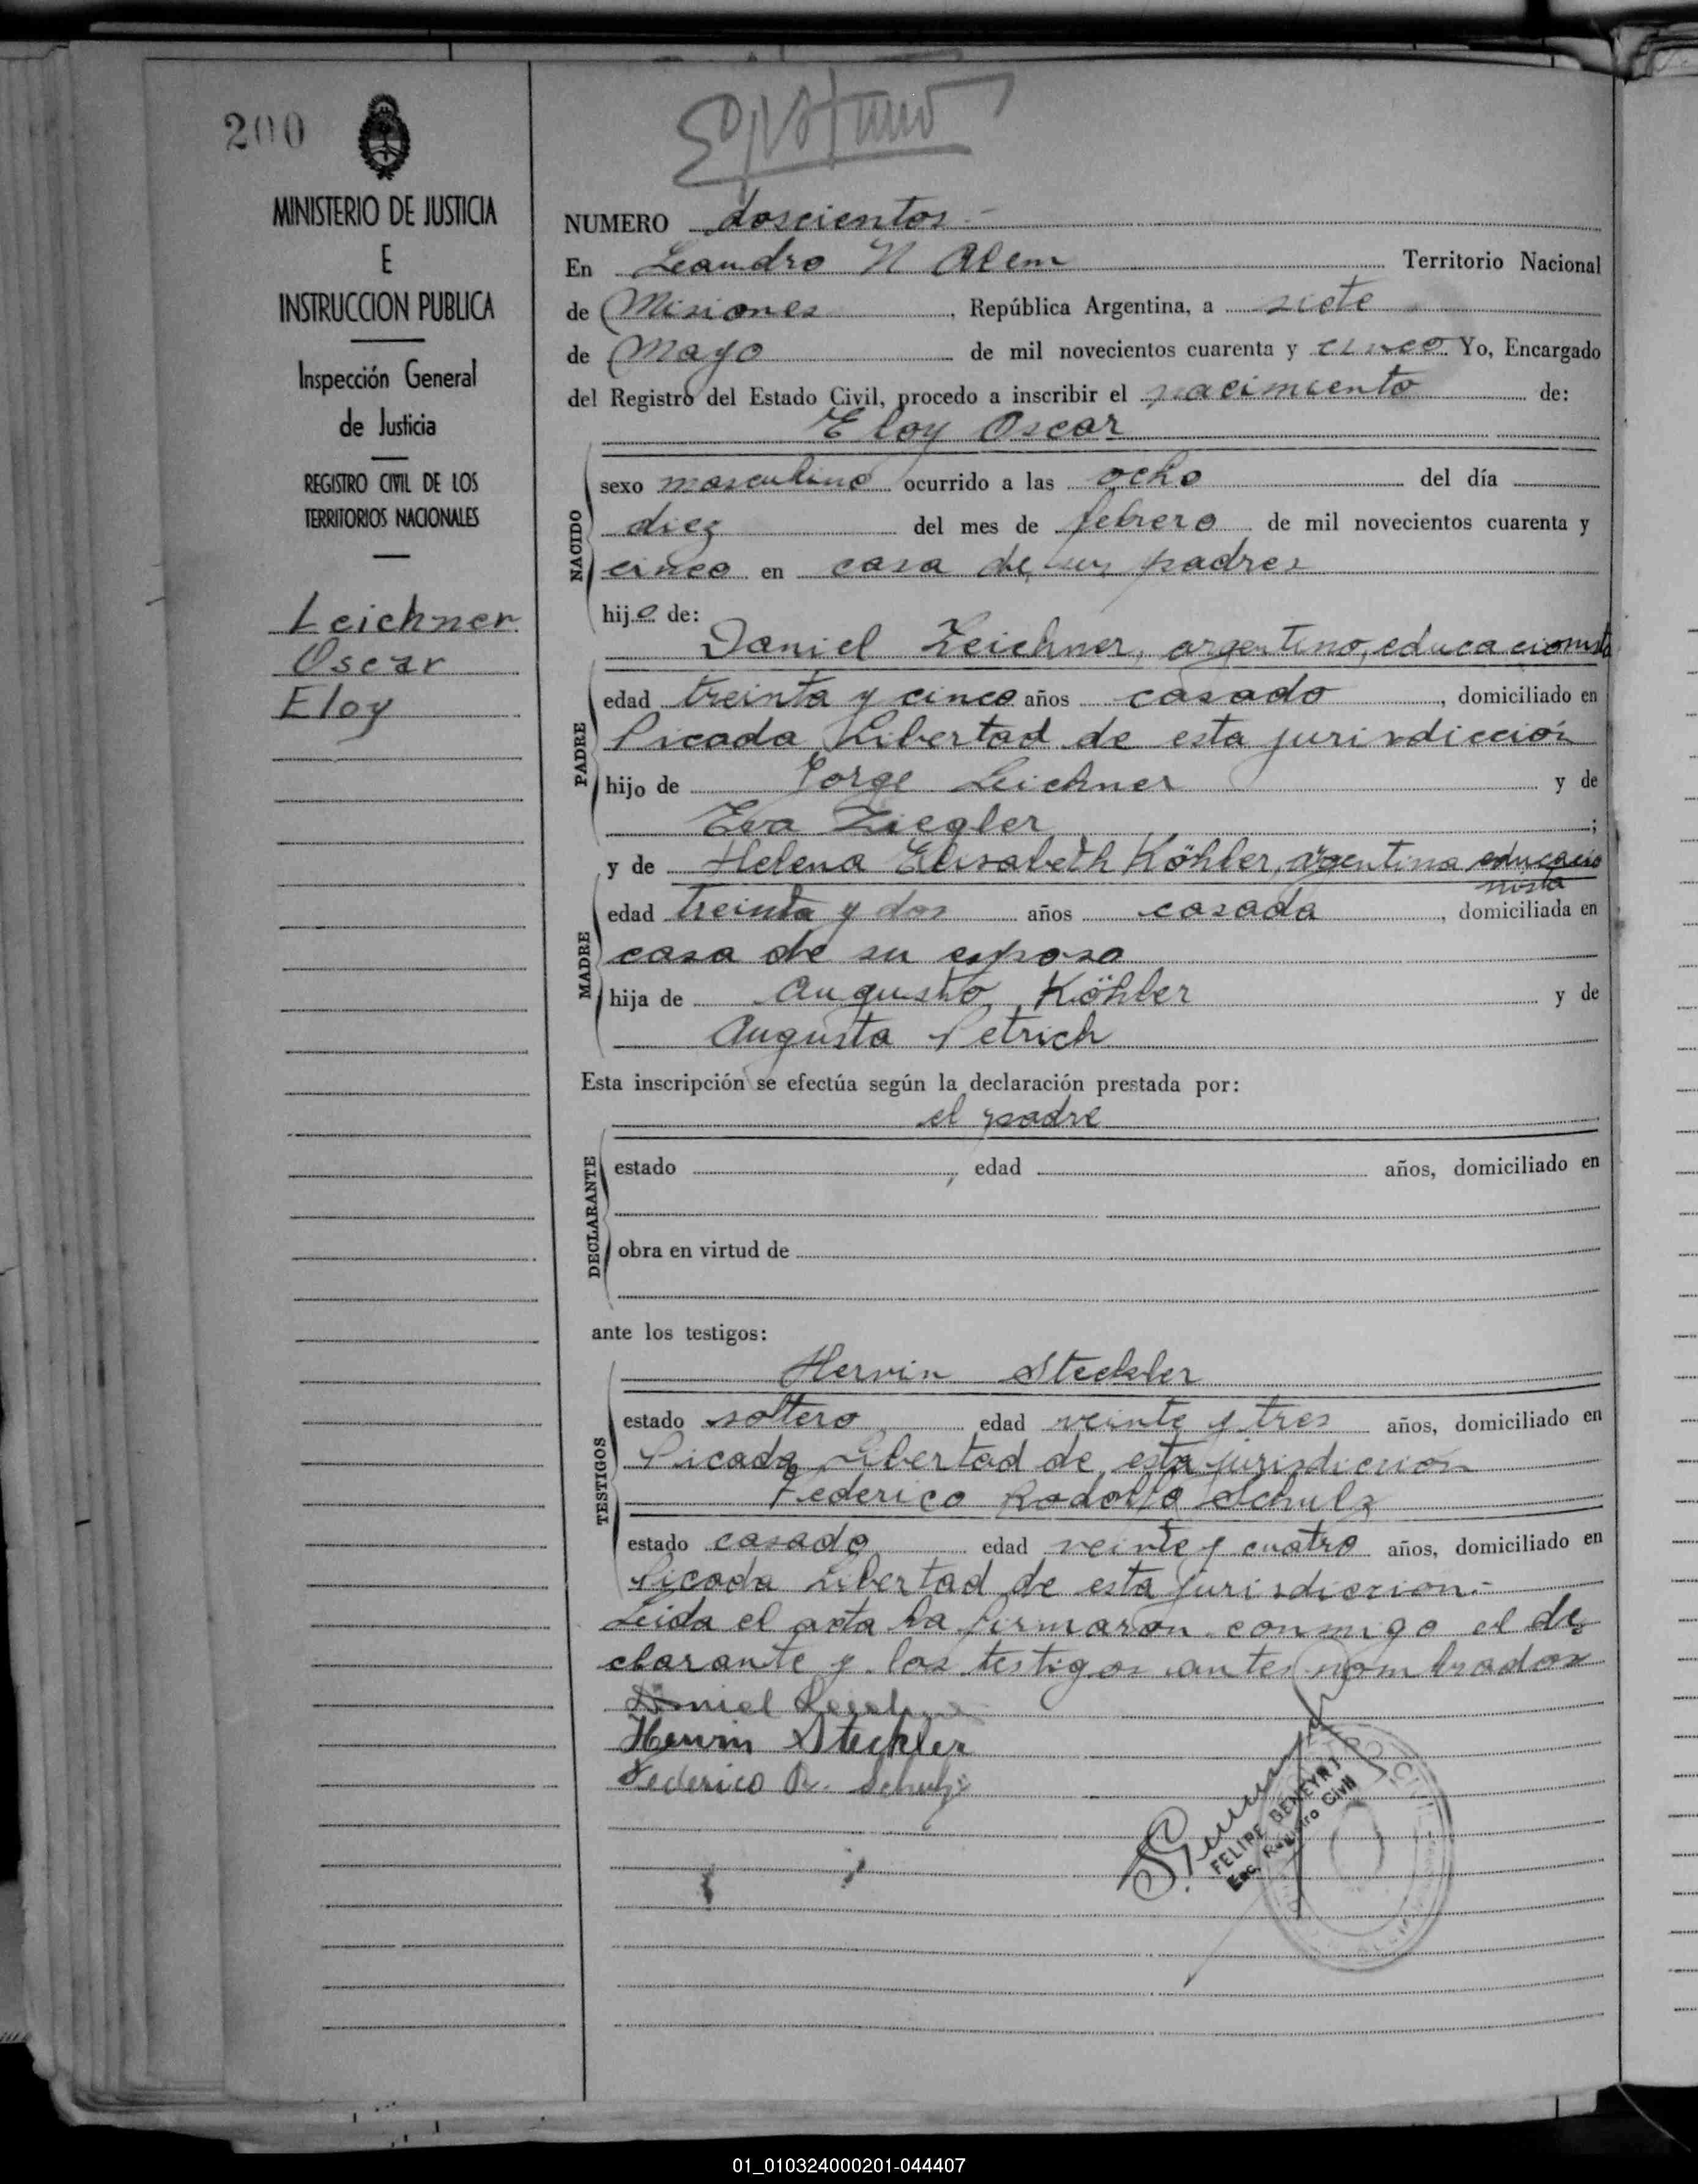 200
MINISTERIO DE JUSTICIA
E
INSTRUCCION PUBLICA
Inspección General
de Justicia
REGISTRO CIVIL DE LOS
TERRITORIOS NACIONALES
Leichner
Oscar
Eloy
NUMERO doscientos.-
En Leandro N Alem Territorio Nacional
de Misiones, República Argentina, a siete
de Mayo de mil novecientos cuarenta y cinco Yo, Encargado
del Registro del Estado Civil, procedo a inscribir el nacimiento de:
Eloy Oscar
NACIDO
sexo masculino ocurrido a las ocho del día
diez del mes de febrero de mil novecientos cuarenta y
cinco en casa de sus padres
hijo de:
Daniel Leichner, argentino, educacionista
PADRE
edad treinta y cinco años casado, domiciliado en
Picada Libertad de esta jurisdicción
hijo de Jorge Leichner y de
Eva Ziegler;
y de Helena Elisabeth Köhler, argentina educacio
nista
MADRE
edad treinta y dos años casada, domiciliada en
casa de su esposo
hija de Augusto Köhler y de
Augusta Petrich
Esta inscripción se efectúa según la declaración prestada por:
el padre
DECLARANTE
estado , edad años, domiciliado en
obra en virtud de
ante los testigos:
Hervin Steckler
TESTIGOS
estado soltero edad veinte y tres años, domiciliado en
Picada Libertad de esta jurisdiccion
Federico Rodolfo Schulz
estado casado edad veinte y cuatro años, domiciliado en
Picada Libertad de esta jurisdiccion.-
Leida el acta la firmaron conmigo el de
clarante y los testigos antes nombrados
Daniel
Hervin Steckler
Federico R. Schulz
FELIPE BENEYRJ
Enc. Registro Civil
01_010324000201-044407